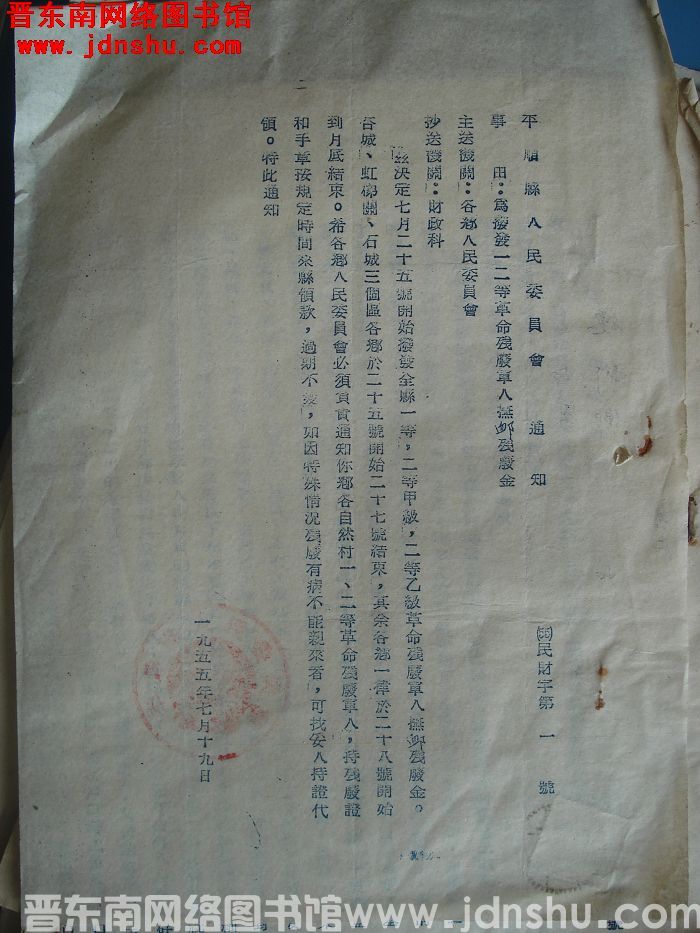 晋东南网络图书馆
www.jdnshu.com
平順縣人民委員會通知
(55)民財字第一號
事由：為撥發一二等革命残廢軍人撫卹残廢金
主送機關：各鄉人民委員會
抄送機關：財政科
茲決定七月二十五號開始撥發全縣一等，二等甲級，二等乙級革命残廢軍人撫卹残廢金。
杏城、虹梯關、石城三個區各鄉於二十五號開始二十七號結束，其余各鄉一律於二十八號開始
到月底結束。希各鄉人民委員會必須負責通知你鄉各自然村一、二等革命残廢軍人，持残廢證
和手章按規定時間來縣領款，過期不發，如因特殊情況残廢有病不能親來者，可找妥人持證代
領。特此通知
一九五五年七月十九日
晋东南网络图书馆www.jdnshu.com